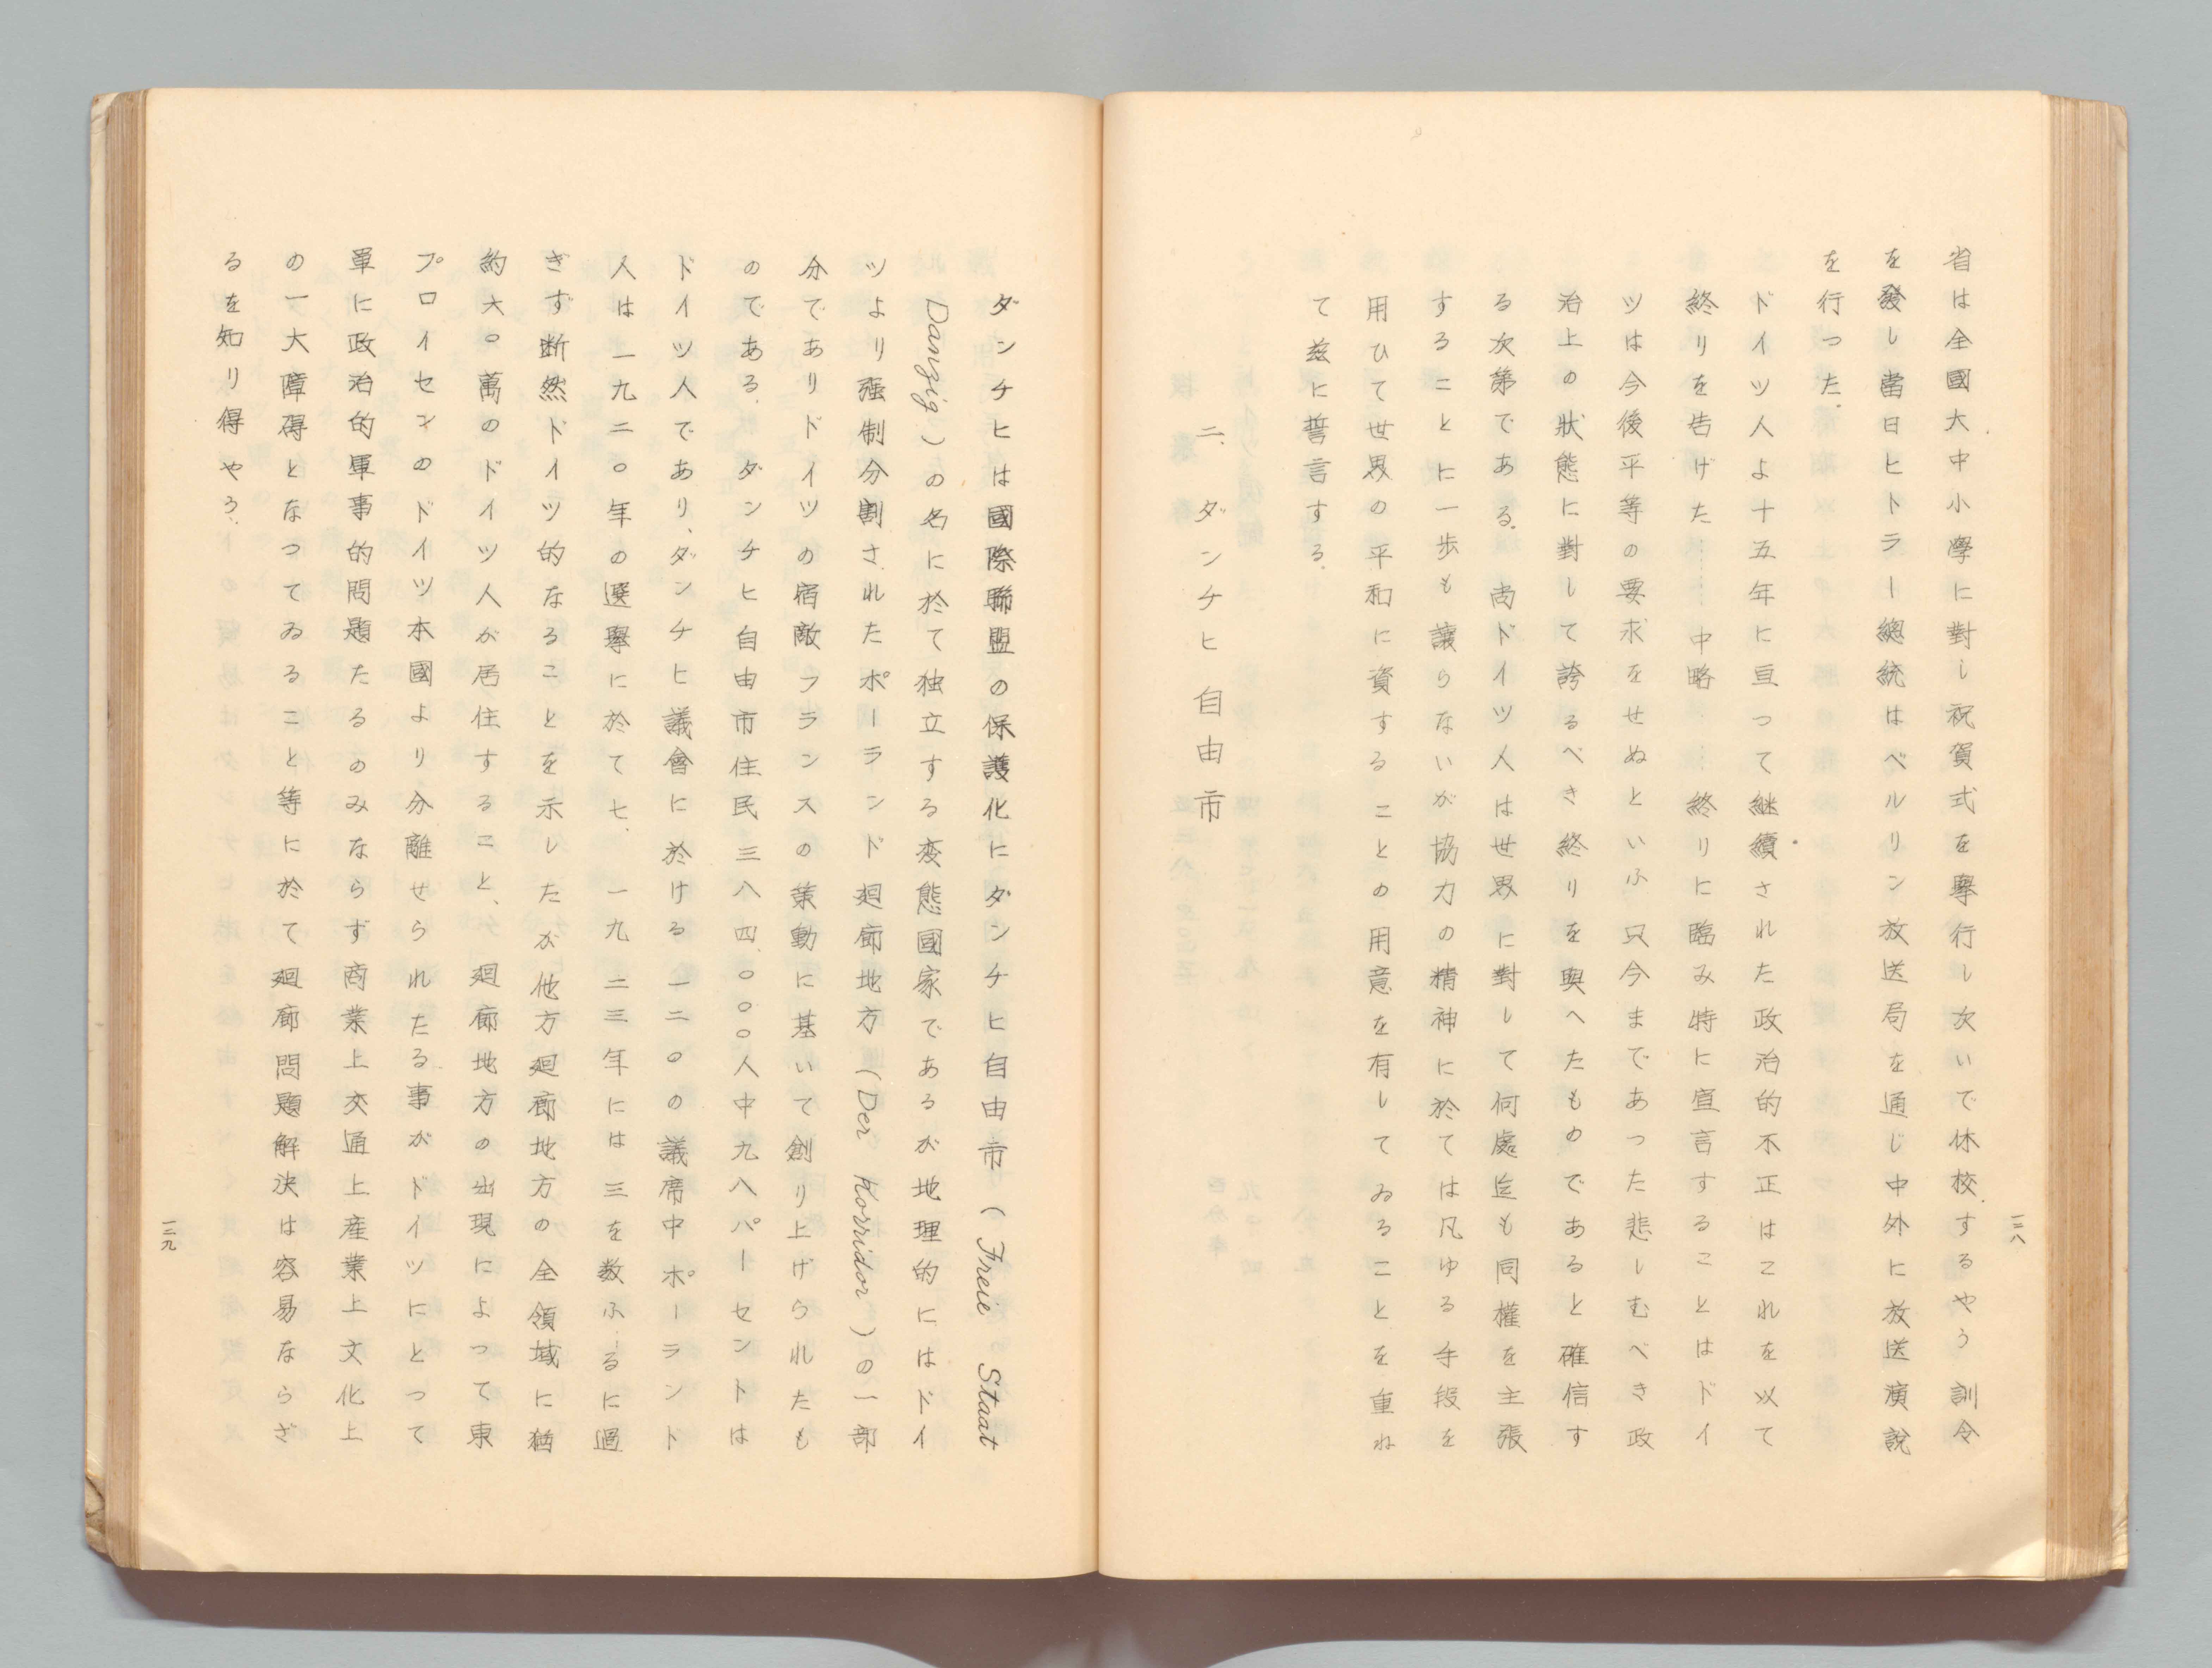 省は全國大中小學に對し祝賀式を擧行し次いで休校するやう訓令
を發し當日ヒトラー總統はベルリン放送局を通じ中外に放送演說
を行つた。
ドイツ人よ十五年に亘つて継續された政治的不正はこれを以て
終りを告げた……中略……終りに臨み特に宣言することはドイ
ツは今後平等の要求をせぬといふ只今まであつた悲しむべき政
治上の狀態に對して誇るべき終りを與へたものであると確信す
る次第である。尚ドイツ人は世界に對して何處迄も同權を主張
することに一步も讓らないが協力の精神に於ては凡ゆる手段を
用ひて世界の平和に資することの用意を有してゐることを重ね
て玆に誓言する。
二、ダンチヒ自由市
一二八
ダンチヒは國際聯盟の保護化にダンチヒ自由市（Freie Staat
Danzig）の名に於て独立する変態國家であるが地理的にはドイ
ツより强制分割されたポーランド廻廊地方（Der Korridor）の一部
分でありドイツの宿敵フランスの策動に基いて創り上げられたも
のである。ダンチヒ自由市住民三八四、〇〇〇人中九八パーセントは
ドイツ人であり、ダンチヒ議會に於ける一二〇の議席中ポーラント
人は一九二〇年の選擧に於て七、一九二三年には三を数ふるに過
ぎず断然ドイツ的なることを示したが他方廻廊地方の全領域に猶
約六〇萬のドイツ人が居住すること、廻廊地方の出現によつて東
プロイセンのドイツ本國より分離せられたる事がドイツにとつて
單に政治的軍事的問題たるのみならず商業上交通上産業上文化上
の一大障碍となつてゐること等に於て廻廊問題解決は容易ならざ
るを知り得やう。
一二九